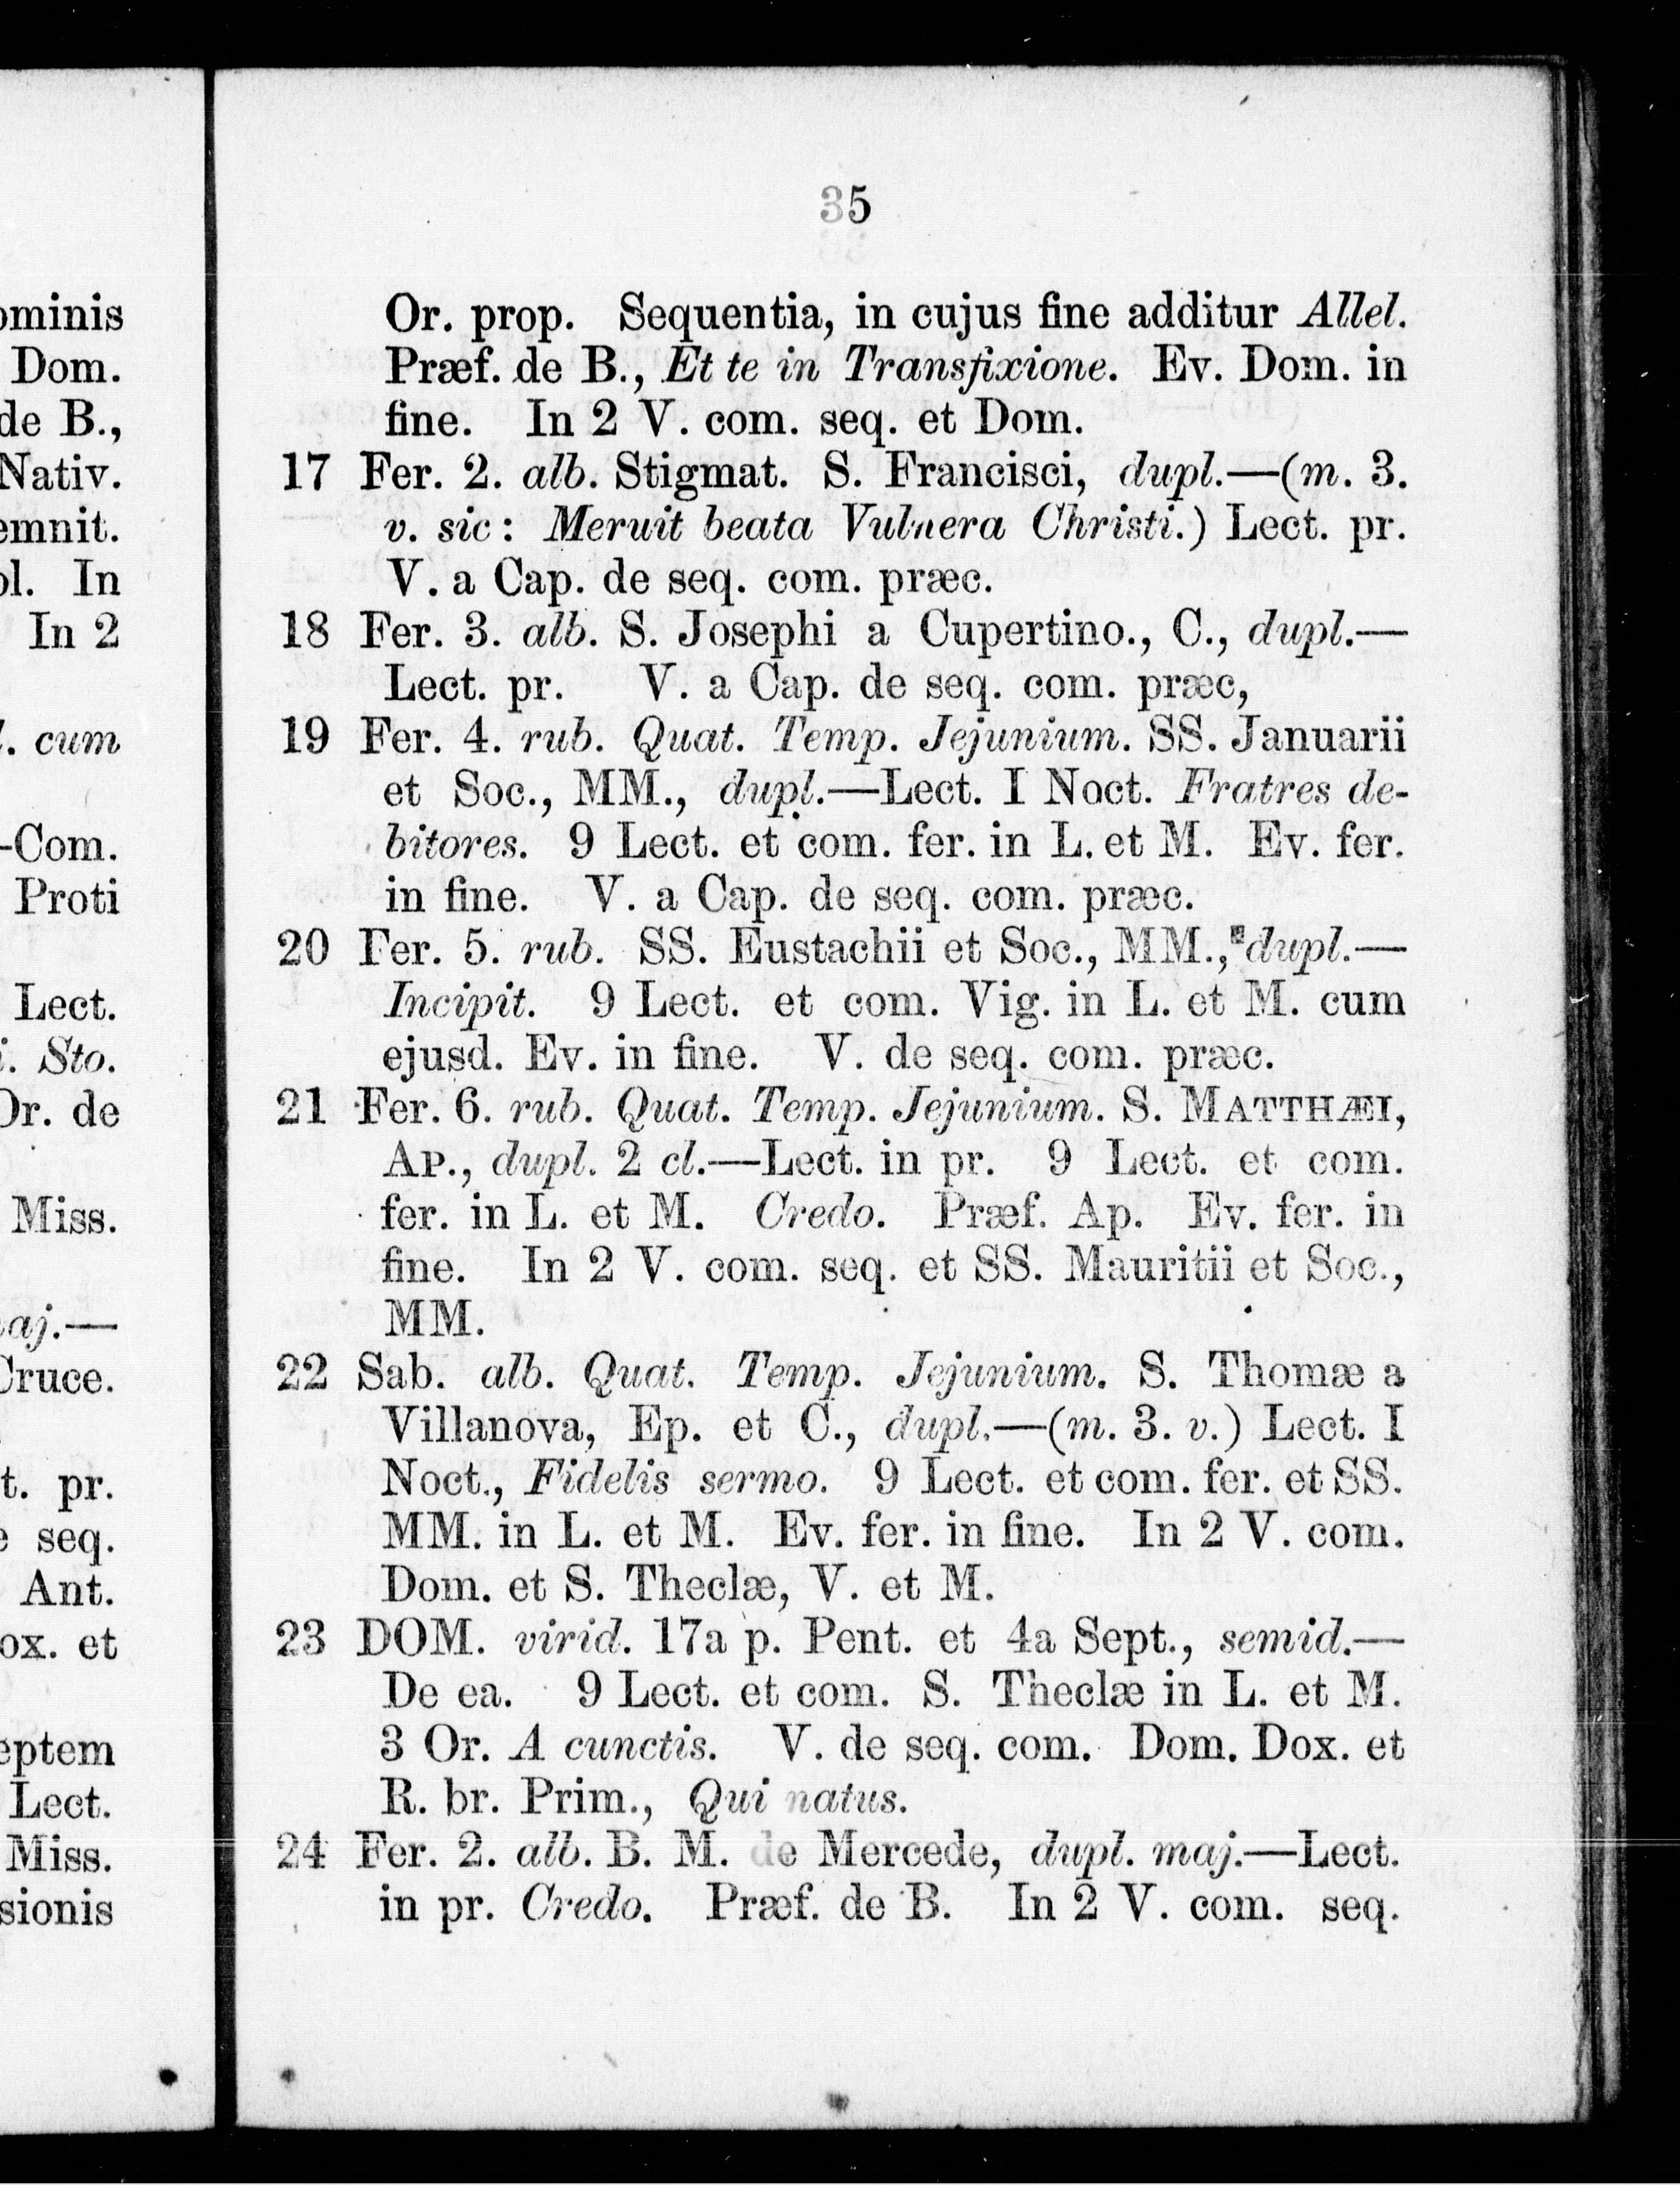 ominis
Dom.
de B.,
Nativ.
emnit.
ol. In
In 2
l. cum
-Com.
Proti
Lect.
i. Sto.
Or. de
Miss.
aj.—
Cruce.
t. pr.
e seq.
Ant.
ox. et
eptem
Lect.
Miss.
sionis
35
Or. prop. Sequentia, in cujus fine additur Allel.
Præf. de B., Et te in Transfixione. Ev. Dom. in
fine. In 2 V. com. seq. et Dom.
17 Fer. 2. alb. Stigmat. S. Francisci, dupl.—(m. 3.
v. sic: Meruit beata Vulnera Christi.) Lect. pr.
V. a Cap. de seq. com. præc.
18 Fer. 3. alb. S. Josephi a Cupertino., C., dupl.—
Lect. pr. V. a Cap. de seq. com. præc,
19 Fer. 4. rub. Quat. Temp. Jejunium. SS. Januarii
et Soc., MM., dupl.—Lect. I Noct. Fratres de-
bitores. 9 Lect. et com. fer. in L. et M. Ev. fer.
in fine. V. a Cap. de seq. com. præc.
20 Fer. 5. rub. SS. Eustachii et Soc., MM., dupl.—
Incipit. 9 Lect. et com. Vig. in L. et M. cum
ejusd. Ev. in fine. V. de seq. com. præc.
21 Fer. 6. rub. Quat. Temp. Jejunium. S. MATTHÆI,
AP., dupl. 2 cl.—Lect. in pr. 9 Lect. et com.
fer. in L. et M. Credo. Præf. Ap. Ev. fer. in
fine. In 2 V. com. seq. et SS. Mauritii et Soc.,
MM.
22 Sab. alb. Quat. Temp. Jejunium. S. Thomæ a
Villanova, Ep. et C., dupl.—(m. 3. v.) Lect. I
Noct., Fidelis sermo. 9 Lect. et com. fer. et SS.
MM. in L. et M. Ev. fer. in fine. In 2 V. com.
Dom. et S. Theclæ, V. et M.
23 DOM. virid. 17a p. Pent. et 4a Sept., semid.—
De ea. 9 Lect. et com. S. Theclæ in L. et M.
3 Or. A cunctis. V. de seq. com. Dom. Dox. et
R. br. Prim., Qui natus.
24 Fer. 2. alb. B. M. de Mercede, dupl. maj.—Lect.
in pr. Credo. Præf. de B. In 2 V. com. seq.